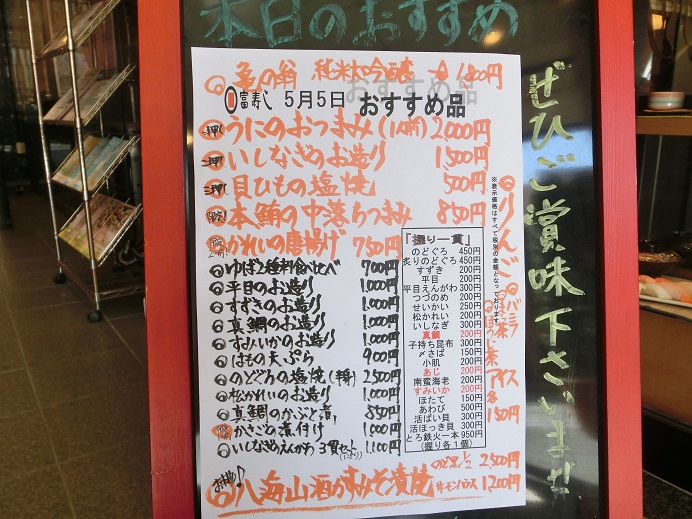 本日のおすすめ
亀の翁 純米大吟醸 一合 1,800円
富寿し 5月5日 おすすめ品
おすすめ品
一押! うにのおつまみ(1人前) 2,000円
二押! いしなぎのお造り 1,500円
三押! 目ひもの塩焼 500円
本鮪の中落ちつまみ 850円
かれいの唐揚げ 750円
ゆば2種料食べ比べ 700円
平目のお造り 1,000円
すずきのお造り 1,000円
真鯛のお造り 1,000円
すみいかのお造り 1,000円
はもの天ぷら 900円
のどぐろの塩焼(半身) 2,500円
松かれいのお造り 1,000円
真鯛のかぶと煮 850円
かさごの煮付け 1,000円
いしなぎのえんがわ 3貫セット 1,100円
「握り一貫」
のどぐろ 450円
炙りのどぐろ 450円
すずき 200円
平目 200円
平目えんがわ 300円
つづのめ 200円
せいかい 250円
松かれい 200円
いしなぎ 300円
真鯛 200円
子持ち昆布 300円
〆さば 150円
小肌 200円
あじ 200円
南蛮海老 200円
すみいか 200円
ほたて 150円
あわび 500円
活ばい貝 300円
活ほっき貝 300円
とろ鉄火一本 950円
(握り各1個)
※表示価格はすべて税別の金額となっております。
りんご
バニラ
ほうじ茶
アイス
各150円
八海山酒かすみそ漬焼
のど黒1/2 2,500円
サーモンハラス 1,200円
ぜひご賞味下さいませ